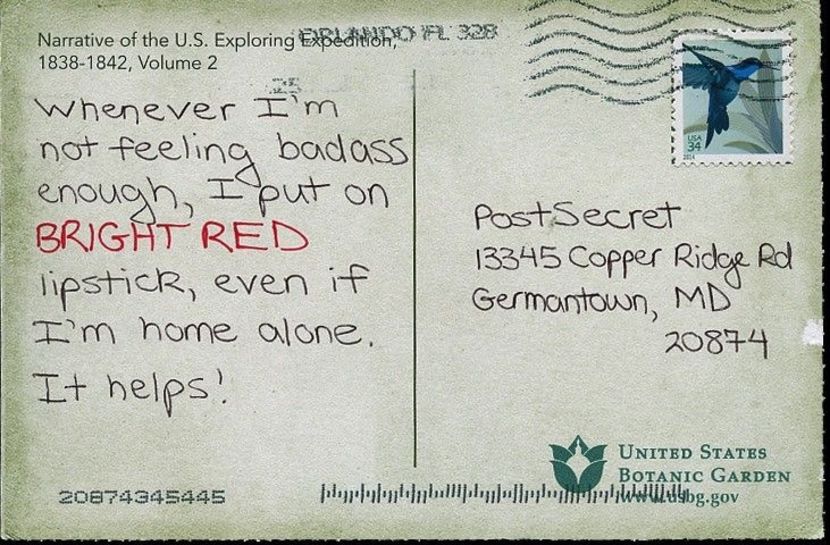 Narrative of the U.S. Exploring Expedition,
1838-1842, Volume 2
ORLANDO FL 328
25
Whenever I'm
not feeling badass
enough, I put on
BRIGHT RED
lipstick, even if
I'm home alone.
It helps!
USA
34
2014
PostSecret
13345 Copper Ridge Rd
Germantown, MD
20874
UNITED STATES
BOTANIC GARDEN
www.usbg.gov
20874345445